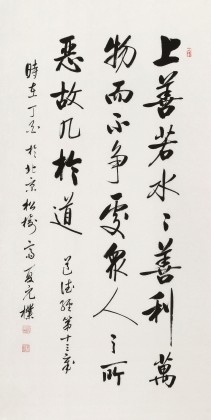 上善若水〻善利萬
物而不争處衆人之所
惡故几於道
道德經第十三章
時在丁亥於北京松樹